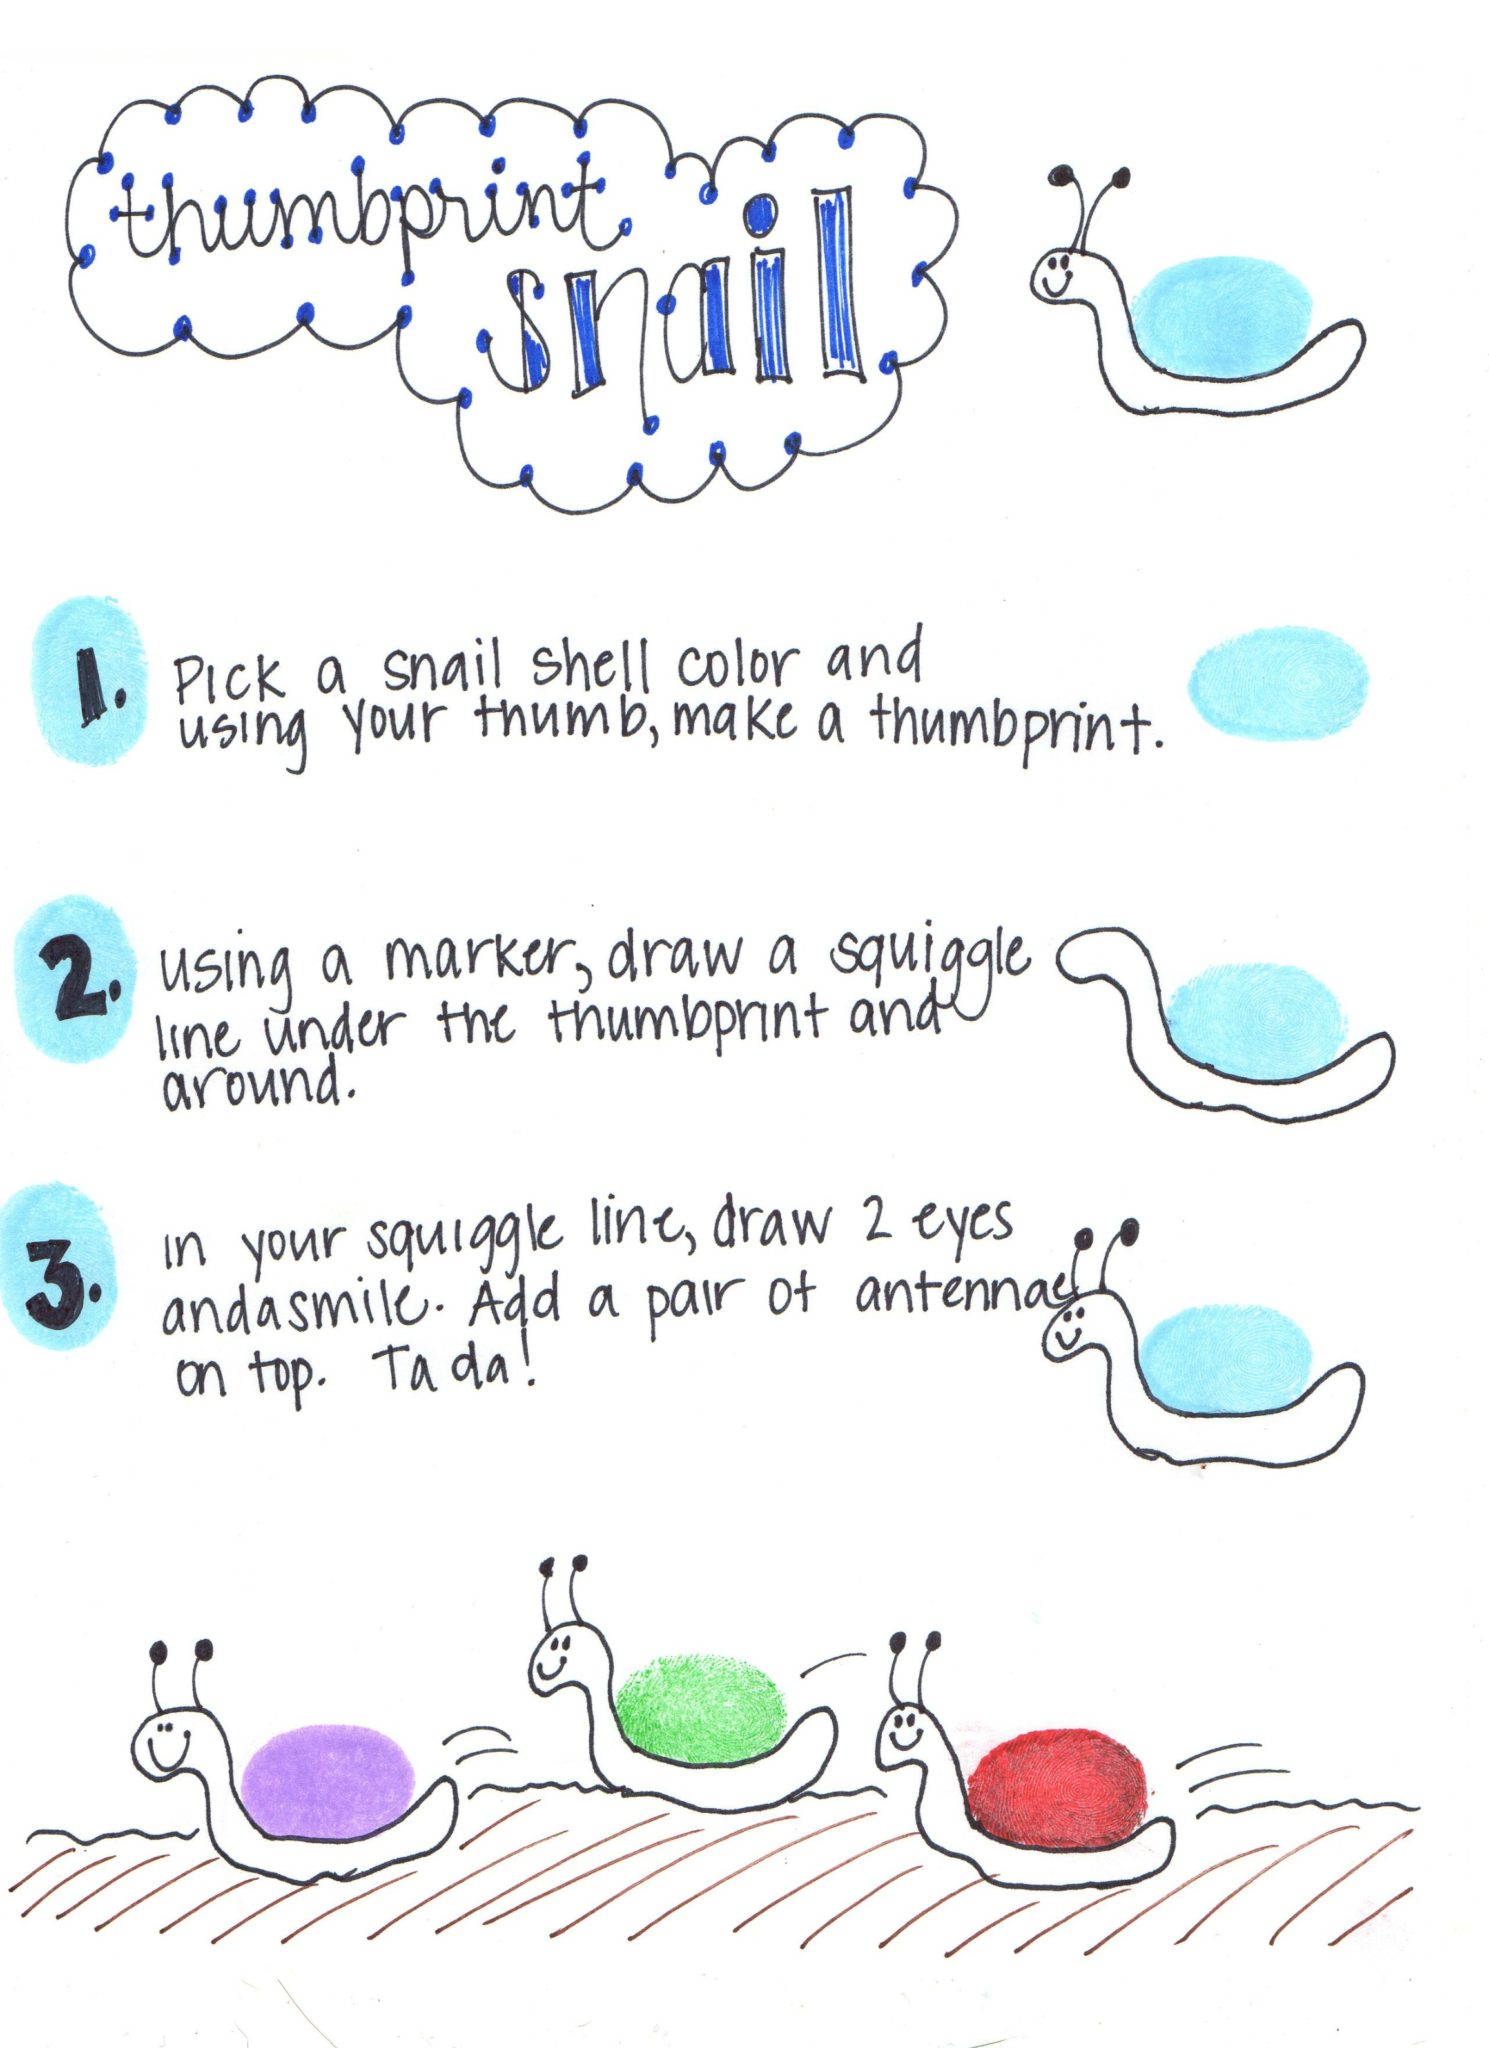 thumbprint
snail
1. Pick a snail shell color and
using your thumb, make a thumbprint.
2. using a marker, draw a squiggle
line under the thumbprint and
around.
3. in your squiggle line, draw 2 eyes
and a smile. Add a pair of antennae
on top. Ta da!